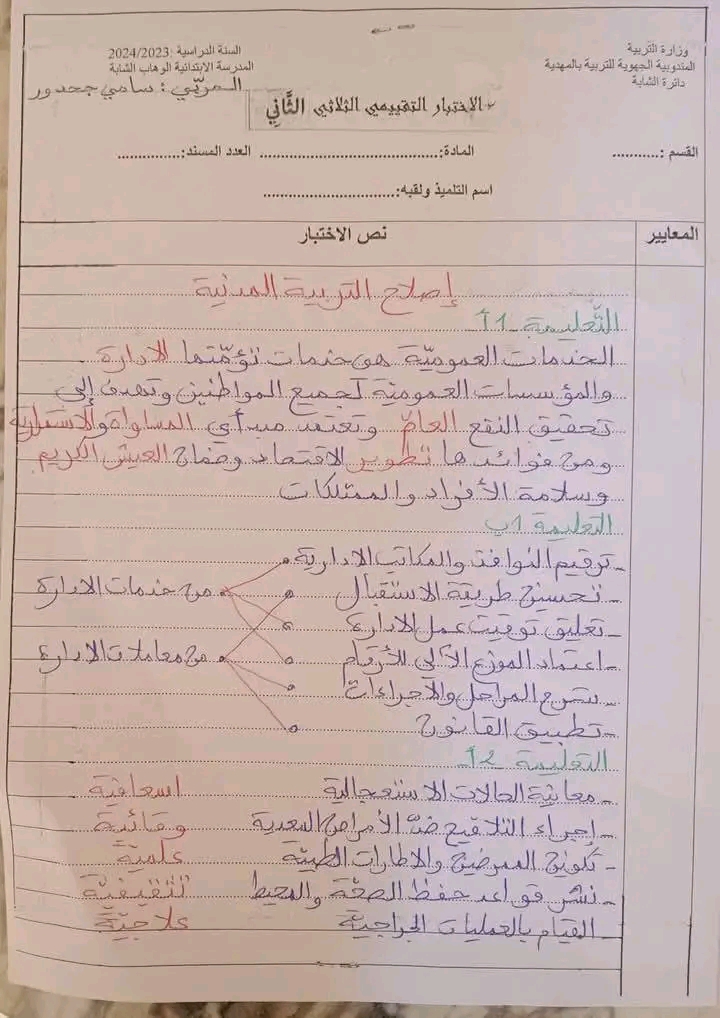 وزارة التربية
المندوبية الجهوية للتربية بالمهدية
دائرة الشابة
السنة الدراسية :2024/2023
المدرسة الابتدائية الوهاب الشابة
المربّي : سامي جحدور
الاختبار التقييمي الثلاثي الثَّاني
القسم :............ المادة:........................................ العدد المسند:..............
اسم التلميذ ولقبه:..............................
المعايير نص الاختبار
إصلاح التربية المدنية
التّعليمة 1أ
الخدمات العموميّة هي خدمات تؤمّنها الادارة
والمؤسسات العمومية لجميع المواطنين وتهدف إلى
تحقيق النفع العامّ وتعتمد مبدأي المساواة والاستمرارية
ومن فوائدها تطوير الاقتصاد وضمان العيش الكريم
وسلامة الأفراد والممتلكات
التعليمة 1ب
- ترقيم النوافذ والمكاتب الادارية
- تحسين طريقة الاستقبال من خدمات الادارة
- تعليق توقيت عمل الادارة
- اعتماد الموزع الآلي للأرقام من معاملات الادارة
- شرح المراحل والاجراءات
- تطبيق القانون
التعليمة 2أ
- معاينة الحالات الاستعجالية اسعافية
- إجراء التلاقيح ضدّ الأمراض المعدية وقائية
- تكوين الممرضين والاطارات الطبيّة علميّة
- نشر قواعد حفظ الصحّة والمحيط تثقيفيّة
- القيام بالعمليات الجراحية علاجيّة